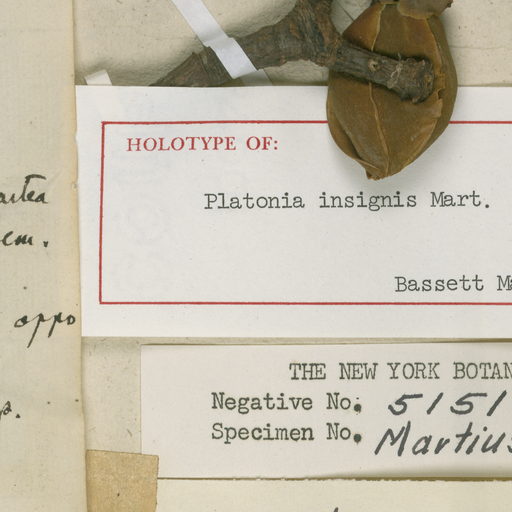 HOLOTYPE OF:
Platonia insignis Mart.
Bassett
cm.
oppo
THE NEW YORK BOTAN
Negative No. 5151
Specimen No. Martius